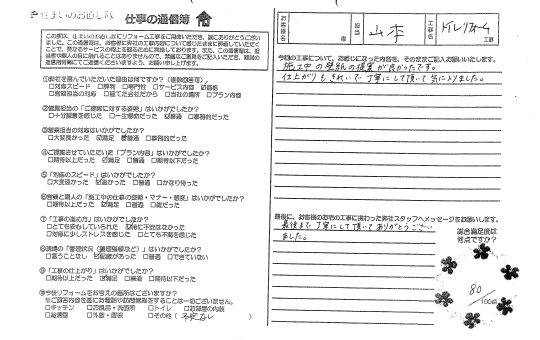 住まいのお直し隊
仕事の通信簿
この度は、住まいのお直し隊にリフォーム工事をご用命いただき、誠にありがとうござい
ました。この通信簿は、お客様に弊社の工事内容について感じたままに評価していただく
ことで、更なるサービスの向上を図るために実施しております。また、この結果は、担
①弊社を選んでいただいた理由は何ですか?(複数回答可)
□対応スピード □評判 □専門性 □サービス内容 ☑価格
□営業担当の対応 □建てた会社だから □当社の場所 □プラン内容
②営業担当の「ご提案に対する姿勢」はいかがでしたか?
□十分誠意を感じた □一生懸命だった ☑普通 □事務的だった
③営業担当の対応はいかがでしたか?
□大変良かった ☑満足 ☑普通 □事務的だった
④ご提案させていただいた「プラン内容」はいかがでしたか?
□期待以上だった ☑満足 □普通 □期待以下だった
⑤「対応のスピード」はいかがでしたか?
□大変速かった ☑速かった □普通 □かなり待った
⑥営繕と職人の「施工中の仕事の姿勢・マナー・態度」はいかがでしたか?
□期待以上だった ☑満足 □普通 □雑だった
⑦「工事の進め方」はいかがでしたか?
□とても安心していられた ☑特に不安はなかった
□対応に少しストレスを感じた □とても不満を感じた
⑧現場の「管理状況(整理整頓など)」はいかがでしたか?
□言うことなし ☑配慮があった □普通 □できていない
⑨「工事の仕上がり」はいかがでしたか?
□期待以上だった ☑満足 □普通 □期待以下だった
⑩今後リフォームをお考えの箇所はございますか?
※ご回答内容を基にお電話や訪問営業をすることは一切ございません。
□キッチン □お風呂・洗面所 □トイレ □お部屋の内装
□給湯器 □外壁・屋根 □その他(予定なし)
お客様名
山本
様
工事名
トイレリフォーム
工事
今回の工事について、お感じになった内容を、そのままご記入お願いいたします。
施工中の壁紙の提案が良かったです。
仕上がりもきれいで丁寧にして頂いて気に入りました。
最後に、お客様のお宅の工事に携わった弊社スタッフへメッセージをお願いします。
最後まで丁寧にして頂いてありがとうござい
ました。
総合満足度は
何点ですか?
80
/100点